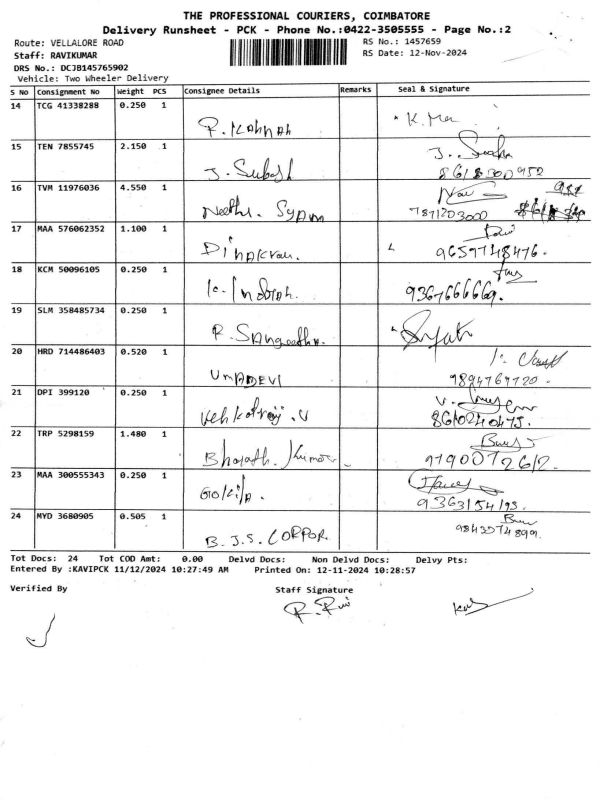 THE PROFESSIONAL COURIERS, COIMBATORE
Delivery Runsheet - PCK - Phone No.:0422-3505555 - Page No.:2
Route: VELLALORE ROAD
RS No.: 1457659
Staff: RAVIKUMAR
RS Date: 12-Nov-2024
DRS No.: DCJB145765902
Vehicle: Two Wheeler Delivery
S No Consignment No Weight PCS Consignee Details Remarks Seal & Signature
14 TCG 41338288 0.250 1
P. Kannan
15 TEN 7855745 2.150 1
J. Subash
16 TVM 11976036 4.550 1
Neethu. Syam 7871203000
17 MAA 576062352 1.100 1
Dinakran. 9659748476.
18 KCM 50096105 0.250 1
9367666669.
19 SLM 358485734 0.250 1
P. Sangeetha.
20 HRD 714486403 0.520 1
UMADEVI 9894767720.
21 DPI 399120 0.250 1
Venkatraj. V 8610240475.
22 TRP 5298159 1.480 1
Bharath. Kumar 9790072612.
23 MAA 300555343 0.250 1
Gokila. 9363154193.
24 MYD 3680905 0.505 1
B.J.S. CORPOR. 9843074899.
Tot Docs: 24 Tot COD Amt: 0.00 Delvd Docs: Non Delvd Docs: Delvy Pts:
Entered By :KAVIPCK 11/12/2024 10:27:49 AM Printed On: 12-11-2024 10:28:57
Verified By Staff Signature